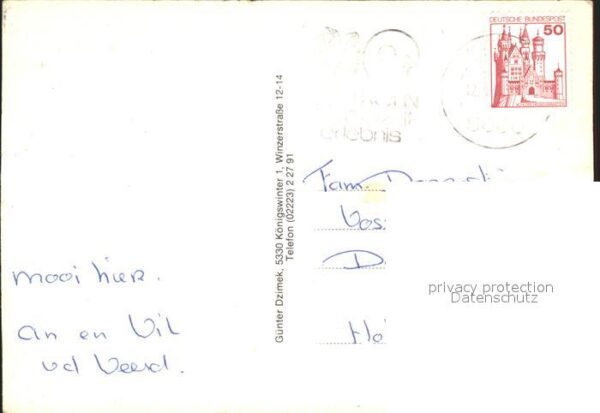 DEUTSCHE BUNDESPOST
50
erlebnis
Günter Dzimek, 5330 Königswinter 1, Winzerstraße 12-14
Telefon (02223) 2 27 91
Fam.
Vos
D
Ho
privacy protection
Datenschutz
mooi hier.
An en Wil
vd Veerd.